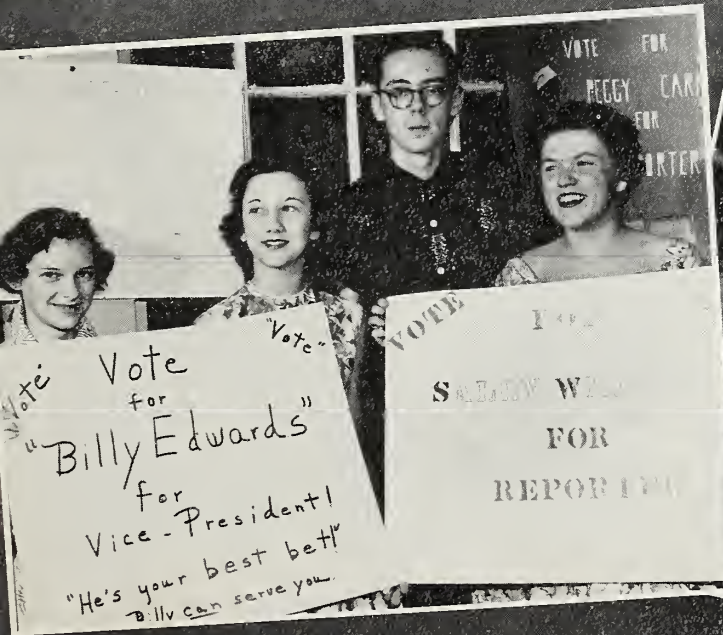 VOTE FOR
PEGGY CARR
FOR
"Vote"
"Vote"
Vote
for
"Billy Edwards"
for
Vice-President!
"He's your best bet!"
Billy can serve you.
VOTE
FOR
FOR
REPORTER